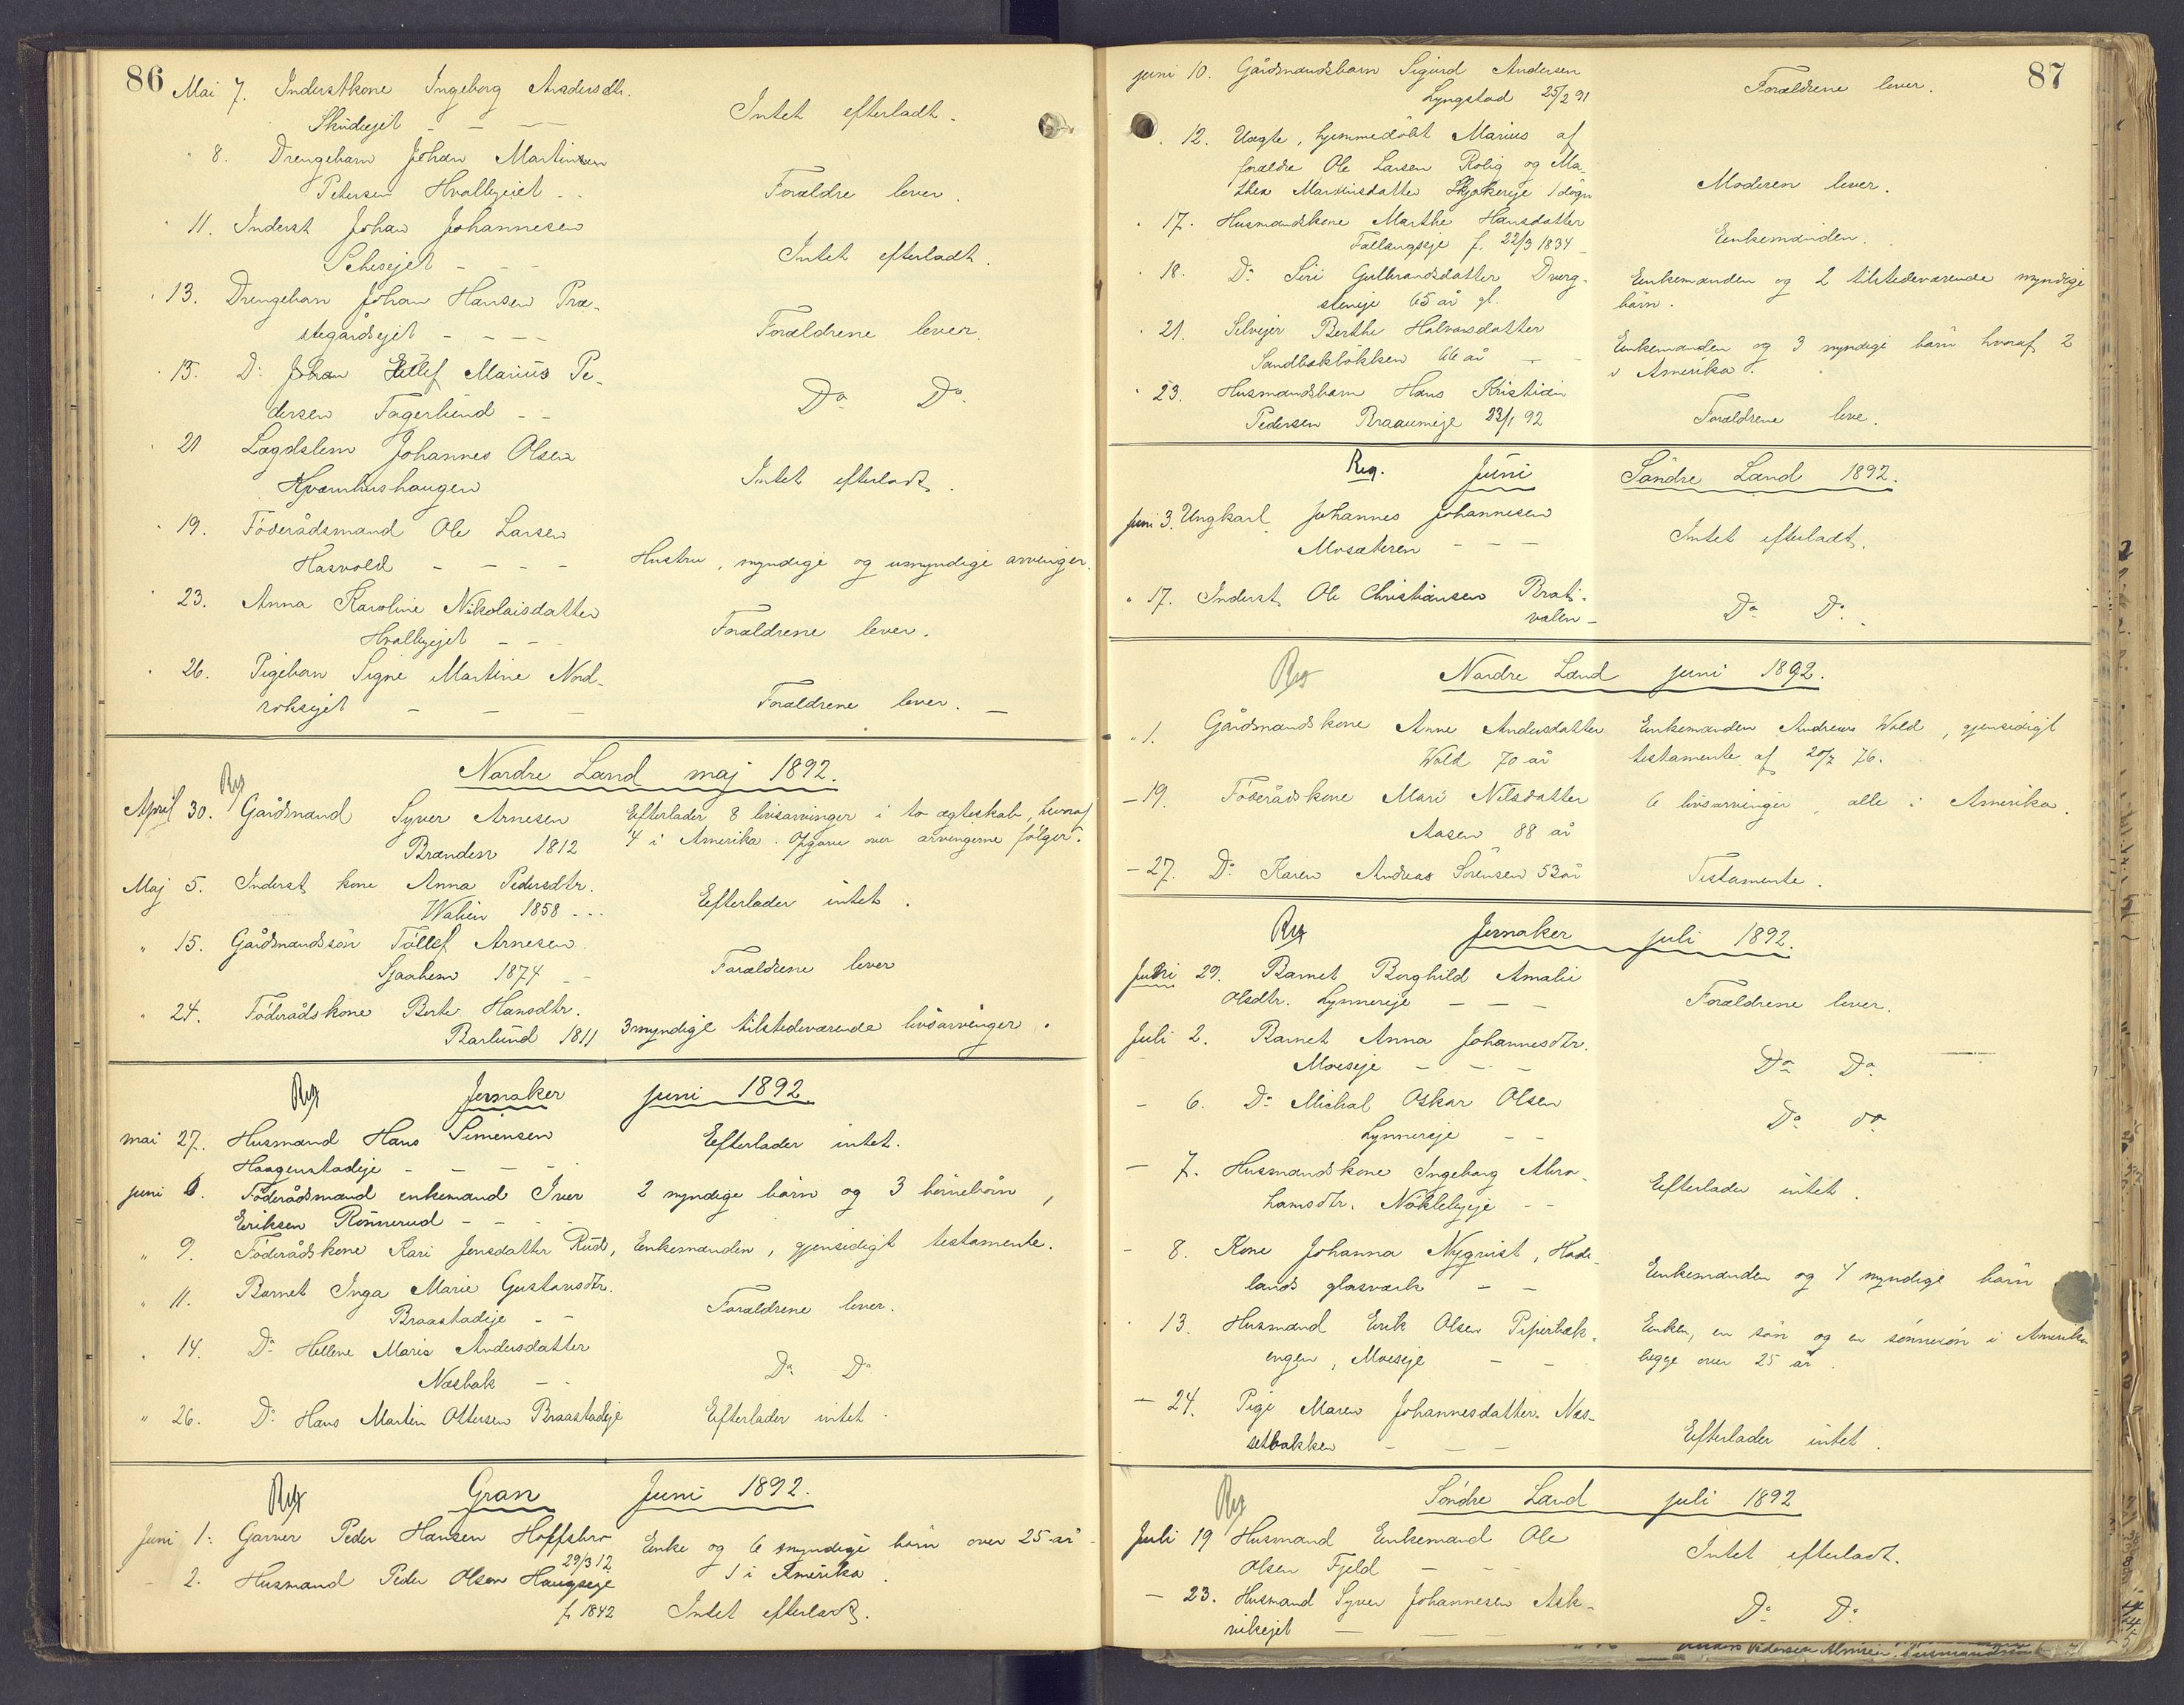 86
Mai 7. Inderstkone Ingeborg Andersdtr.
Skudejet - - - Intet efterladt.
" 8. Drengebarn Johan Martinsen
Petersen Hvalbyeiet - - Forældre lever.
" 11. Inderst Johan Johannesen
- - - Intet efterladt.
" 13. Drengebarn Johan Hansen Præ-
stegårdsejet - - - - Forældrene lever.
" 15. Do Johan Marius Pe-
dersen Fagerlund - - Do Do
" 21 Lægdslem Johannes Olsen
Kværnhushaugen Intet efterladt.
" 19. Föderådsmand Ole Larsen
Hasvold - - - - Hustru, myndige og umyndige arvinger.
" 23. Anna Karoline Nikolaisdatter
Hvalbyejet - - - Forældrene lever.
" 26. Pigebarn Signe Martine Nord-
- - - Forældrene lever. -
Reg
Nordre Land maj 1892.
April 30. Gårdmand Syver Arnesen Efterlader 8 livsarvinger i to ægteskab, hvoraf
Branden 1812 4 i Amerika. Opgave over arvingerne følger.
Maj 5. Inderst kone Anna Pedersdtr.
1858 - - - Efterlader intet.
" 15. Gårdmandssön Töllef Arnesen
1874 - Forældrene lever
" 24. Föderådskone Berte Hansdtr.
Barlund 1811 3 myndige tilstedeværende livsarvinger.
Reg Jernaker juni 1892
mai 27. Husmand Hans Simensen Efterlader intet.
Haagenstadeje - - - -
juni 6. Föderådsmand enkemand Iver 2 myndige börn og 3 börnebörn,
Eriksen Rönnerud - - - -
" 9. Föderådskone Kari Jensdatter Rud, Enkemanden, gjensidigt testamente.
" 11. Barnet Inga Marie Gustavsdtr.
Braastadeje - - Forældrene lever.
" 14. Do Hellene Marie Andersdatter
Næsbak - - Do Do
" 26. Do Hans Martin Ottersen Braastadeje Efterlader intet.
Reg Gran Juni 1892.
Juni 1. Garver Peder Hansen Hoffsbro Enke og 6 myndige börn over 25 år
29/3 12. 1 i Amerika.
- 2. Husmand Peder Olsen Haugseje
f. 1842 Intet efterladt.
87
juni 10. Gårdmandsbarn Sigurd Andersen
Lyngstad 25/2 91 Forældrene lever.
" 12. Uægte, hjemmedöbt Marius af
forældre Ole Larsen Rolig og Ma-
thea Martinsdatter 1 dögn Moderen lever.
" 17. Husmandskone Marthe Hansdatter
Fallangseje f. 22/3 1834 - Enkemanden.
" 18. Do Siri Gulbrandsdatter Dverg- Enkemanden og 2 tilstedeværende myndige
steneje 65 år gl. börn.
" 21. Selvejer Berthe Halvorsdatter
Sandbakbökken 66 år - - Enkemanden og 3 myndige börn hvoraf 2
i Amerika.
" 23. Husmandsbarn Hans Kristian
Pedersen 23/1 92 Forældrene leve.
Reg. Juni Söndre Land 1892.
Juni 3. Ungkarl Johannes Johannesen
Mosæteren - - - Intet efterladt.
" 17. Inderst Ole Christiansen Brati-
- Do Do.
Reg Nordre Land juni 1892.
" 1. Gårdmandskone Anne Andersdatter Enkemanden Andreas Wold, gjensidigt
Wold 70 år testamente af 20/7 76.
- 19. Föderådskone Mari Nilsdatter 6 livsarvinger, alle i Amerika.
Aasen 88 år
- 27. Do Karen Andrea Sörensen 53 år Testamente.
Reg Jernaker juli 1892.
Juni 29. Barnet Borghild Amalie
Olsdtr. Lynnereje - - - Forældrene lever.
Juli 2. Barnet Anna Johannesdtr.
Moeseje - - - Do Do
- 6. Do Michal Oskar Olsen
Lynnereje - - Do do
- 7. Husmandskone Ingeborg Abra-
hamsdtr. Nöklebyeje - - Efterlader intet.
- 8. Kone Johanna Nyqvist, Hade-
lands glasværk - - Enkemanden og 4 myndige börn
" 13. Husmand Erik Olsen Piperbæk- Enken, en sön og en sönnesön i Amerika
engen, Moeseje - - begge over 25 år.
- 24. Pige Maren Johannesdatter. Næs-
setbakken - - - Efterlader intet.
Reg Söndre Land juli 1892
Juli 19 Husmand Enkemand Ole
Olsen Fjeld - - - Intet efterladt.
- 23. Husmand Syver Johannesen Ask-
vikejet - - - Do Do